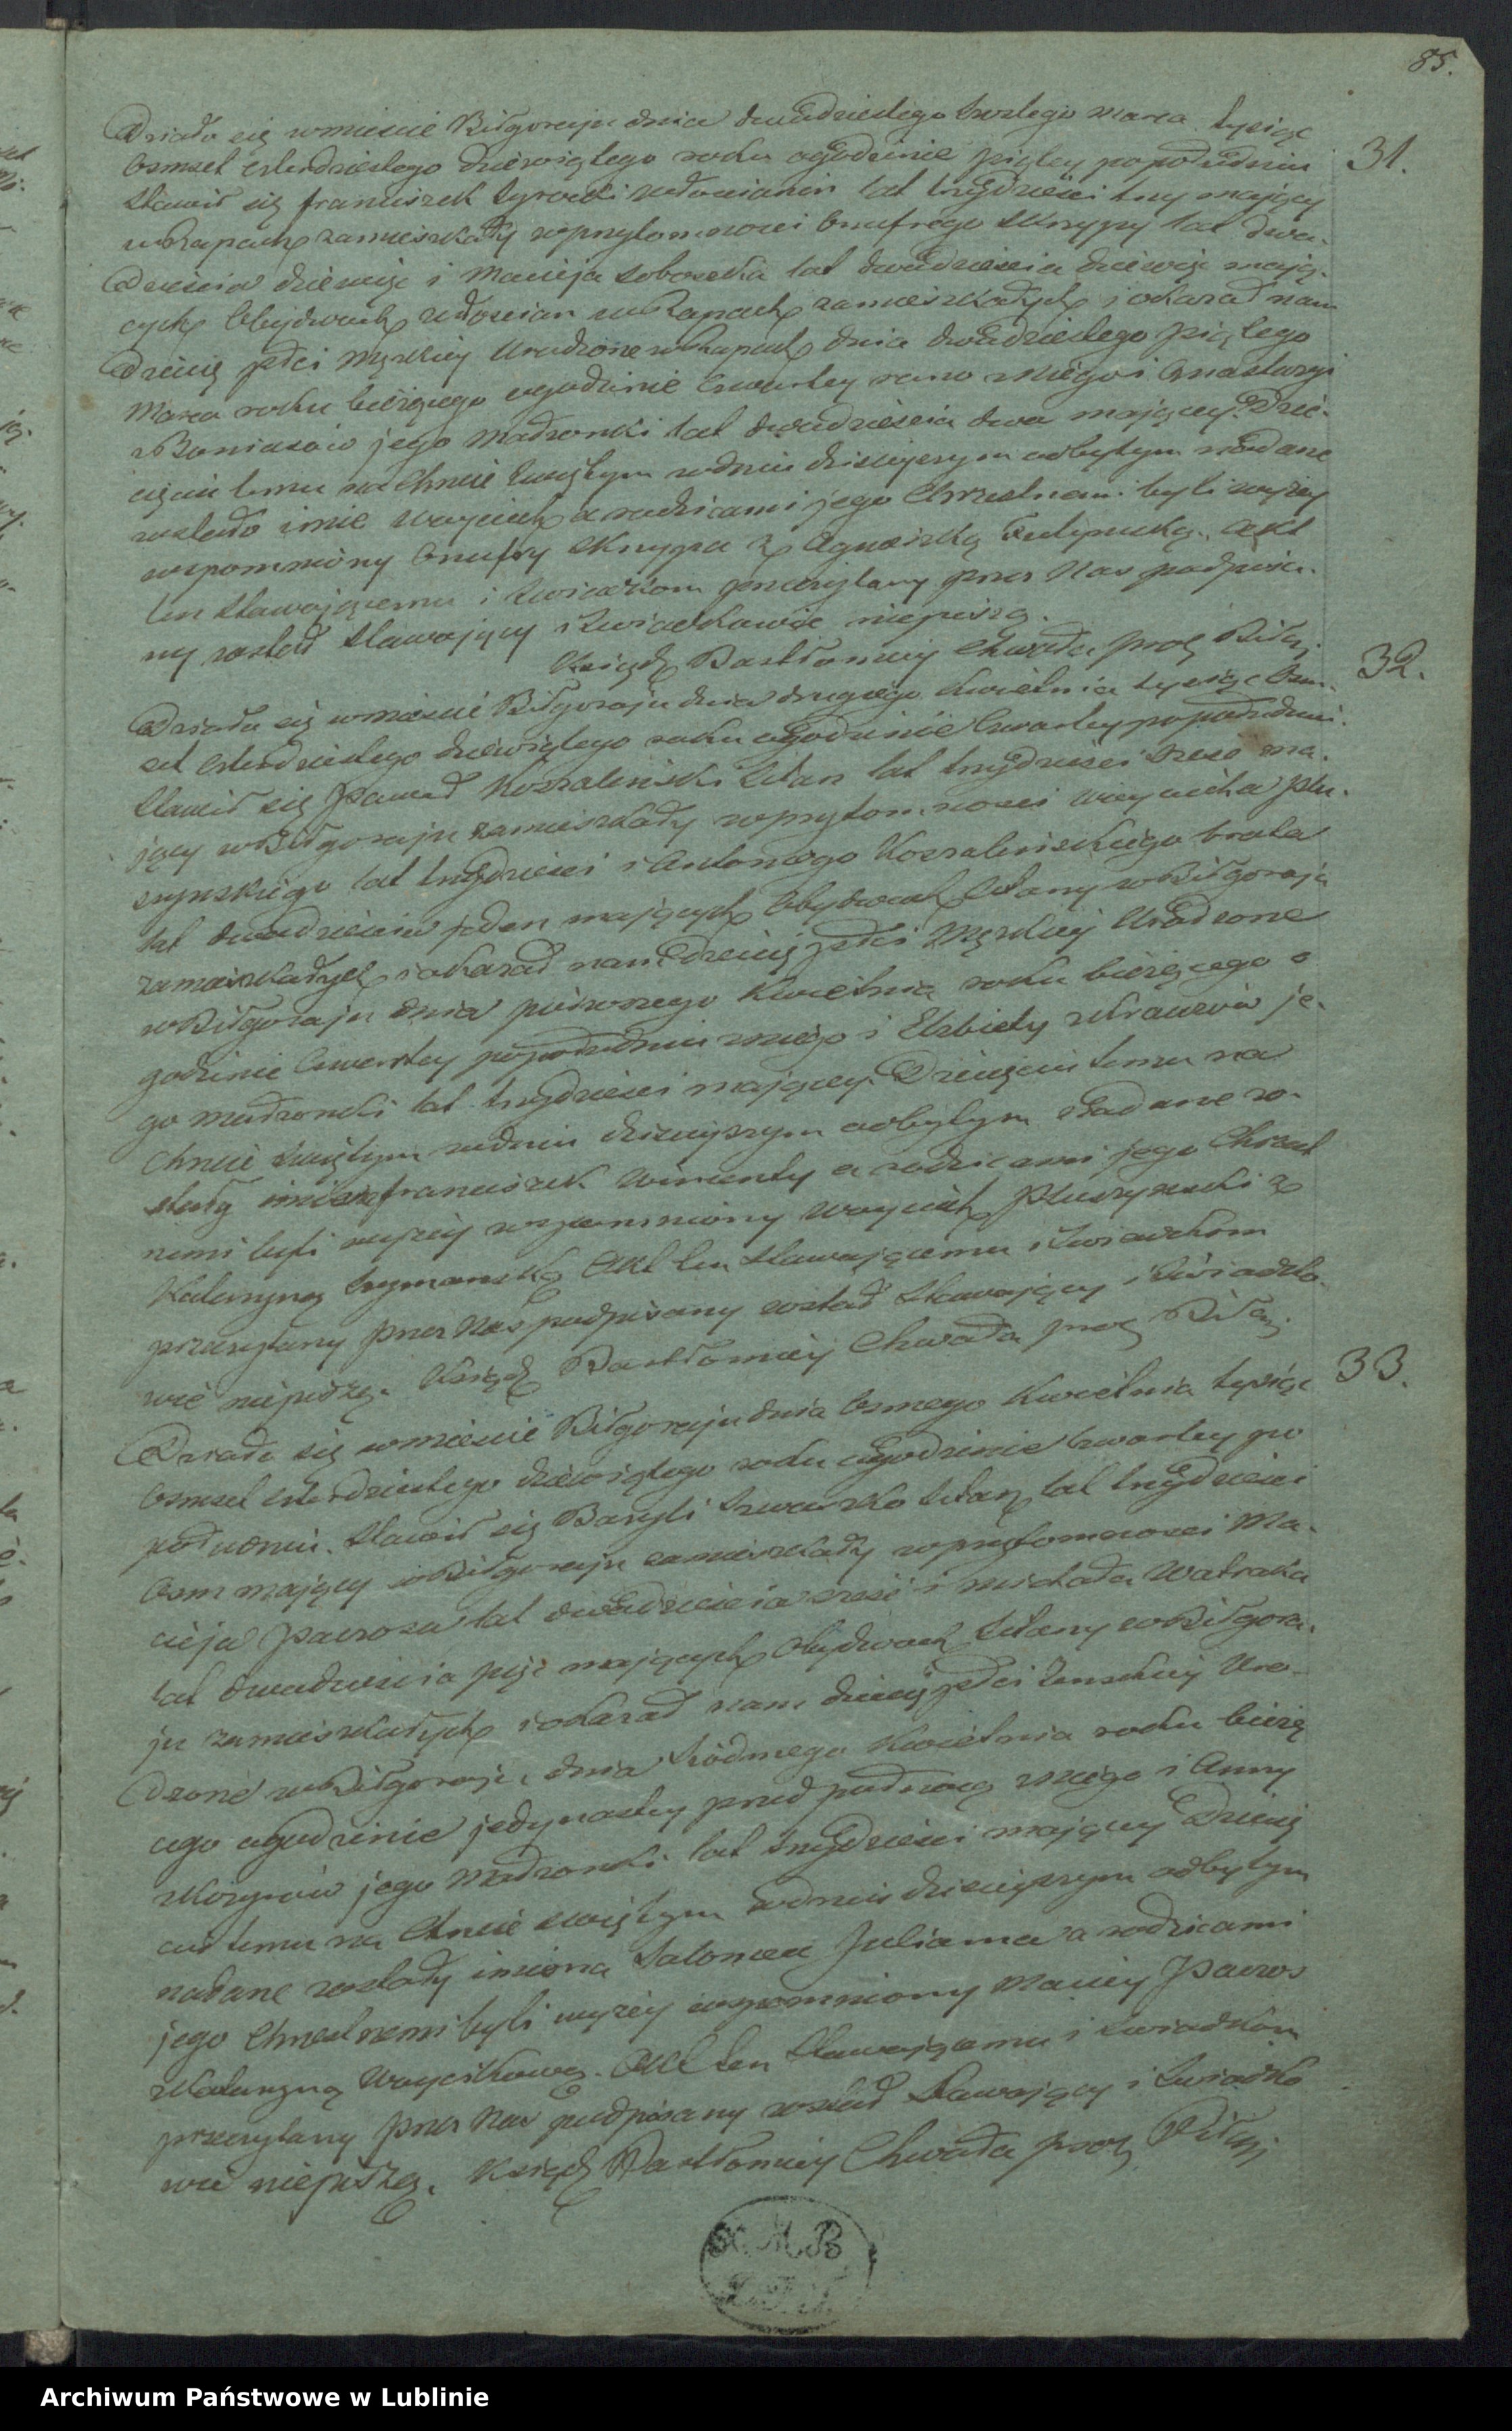 85.
Działo się w mieście Biłgoraju dnia dwudziestego trzeciego Marca tysiąc
31.
Osmset czterdziestego dziewiątego roku o godzinie piątey popołudniu
Stawił się Franciszek Syrocki włościanin lat trzydzieści trzy mający
w Rapach zamieszkały w przytomności Onufrego Skrzypy lat dwa-
dzieścia dziewięć i Macieja Soboseka lat dwadzieścia dziewięć mają-
cych Obydwóch włościan w Rapach zamieszkałych i okazał nam
Dziecię płci Męzkiey Urodzone w Rapach dnia dwudziestego piątego
Marca roku bieżącego o godzinie czwartey rano z niego i Anastazyi
z Baniasów jego Małżonki lat dwadzieścia dwa mającey. Dzie-
cięciu temu na Chrzcie Świętym w dniu dzisieyszym odbytym nadane
zostało imie Woyciech a rodzicami jego Chrzestnemi byli wyżey
wspomniony Onufry Skrzypa z Agnieszką akt
ten Stawającemu i Świadkom przeczytany przez Nas podpisa-
ny został Stawający i Świadkowie niepiszą.
Ksiądz Bartłomiey Chwała prob Biłg.
32.
Działo się w mieście Biłgoraju dnia drugiego Kwietnia tysiąc Osm-
set czterdziestego dziewiątego roku o godzinie czwartey popołudniu.
Stawił się Paweł Koszaliński Sitarz lat trzydzieści sześć ma-
jący w Biłgoraju zamieszkały w przytomności Woyciecha Plu-
szynskiego lat trzydzieści i Antoniego Koszalinskiego brata
lat dwadzieścia jeden mających Obydwóch Sitarzy w Biłgoraju
zamieszkałych i okazał nam Dziecię płci Męzkiey Urodzone
w Biłgoraju dnia pierwszego Kwietnia roku bieżącego o
godzinie czwartey popołudniu z niego i Elżbiety z Krawców je-
go małżonki lat trzydzieści mającey. Dziecięciu temu na
Chrzcie Świętym w dniu dzisieyszym odbytym nadane zo-
stały imiona Franciszek Wincenty a rodzicami jego Chrzest
nemi byli wyżey wspomniony Woyciech Pluszynski z
Katarzyną Szymanską Akt ten Stawającemu i Świadkom
przeczytany przez Nas podpisany został Stawający i Świadko-
wie niepiszą. Ksiądz Bartłomiey Chwała prob Biłg.
33.
Działo się w mieście Biłgoraju dnia Osmego Kwietnia tysiąc
Osmset czterdziestego dziewiątego roku o godzinie czwartey po
południu. Stawił się Bazyli Szwaczko Sitarz lat trzydzieści
Osm mający w Biłgoraju zamieszkały w przytomności Ma-
cieja Pawzosa lat dwadzieścia sześć i Michała Watraka
lat dwadzieścia pięć mających Obydwóch Sitarzy w Biłgora-
ju zamieszkałych i okazał nam dziecię płci żenskiey Uro-
dzone w Biłgoraju dnia Siódmego Kwietnia roku bieżą
cego o godzinie jedynastey przed północą z niego i Anny
z Kozynów jego Małżonki lat trzydzieści mającey Dziecię
ciu temu na Chrzcie Świętym w dniu dzisieyszym odbytym
nadane zostały imiona Salomea Julianna a rodzicami
jego Chrzestnemi byli wyżey wspomniony Maciey Pawzos
z Katarzyną Woycikową. Akt ten Stawającemu i Świadkom
przeczytany przez Nas podpisany został Stawający i Świadko
wie niepiszą. Ksiądz Bartłomiey Chwała prob Biłg.
Archiwum Państwowe w Lublinie